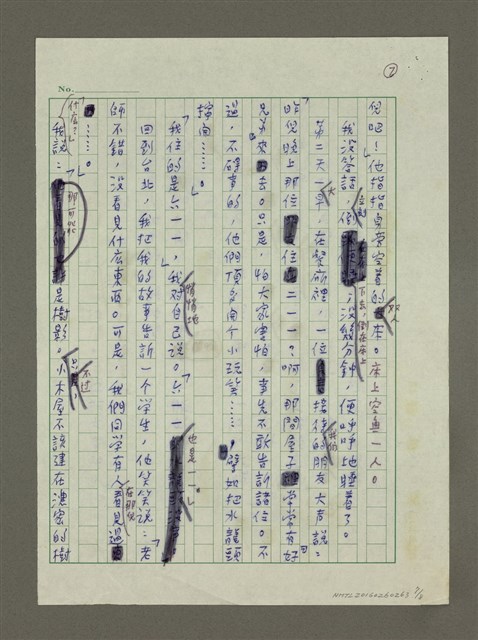 No.
⑦
兒吧!他指指桌旁空着的双人床。床上空無一人。
我沒答話,倒在床上,沒幾分鐘,便呼呼地睡着了。
第二天一大早,在餐廳裡,一位接待的朋友大声說:
昨兒晚上那位住二一一?啊,那間屋子常常有好
兄弟來去。只是,怕大家害怕,事先不敢告訴諸位。不
過,不碍事的,他們頂多開個小玩笑……,譬如把水龍頭
擰開……。」
「我住的是六一一,」我悄悄地對自己說。六一一也是一一」
回到台北,我把我的故事告訴一個学生,他笑笑說:「老
師不錯,沒看見什広東西。可是,我們同学有人在那兒看見過
……。」
「什広?」
我說:「那可能是樹影。不过,小木屋不該建在濃密的樹
NMTL20160260263 7/8